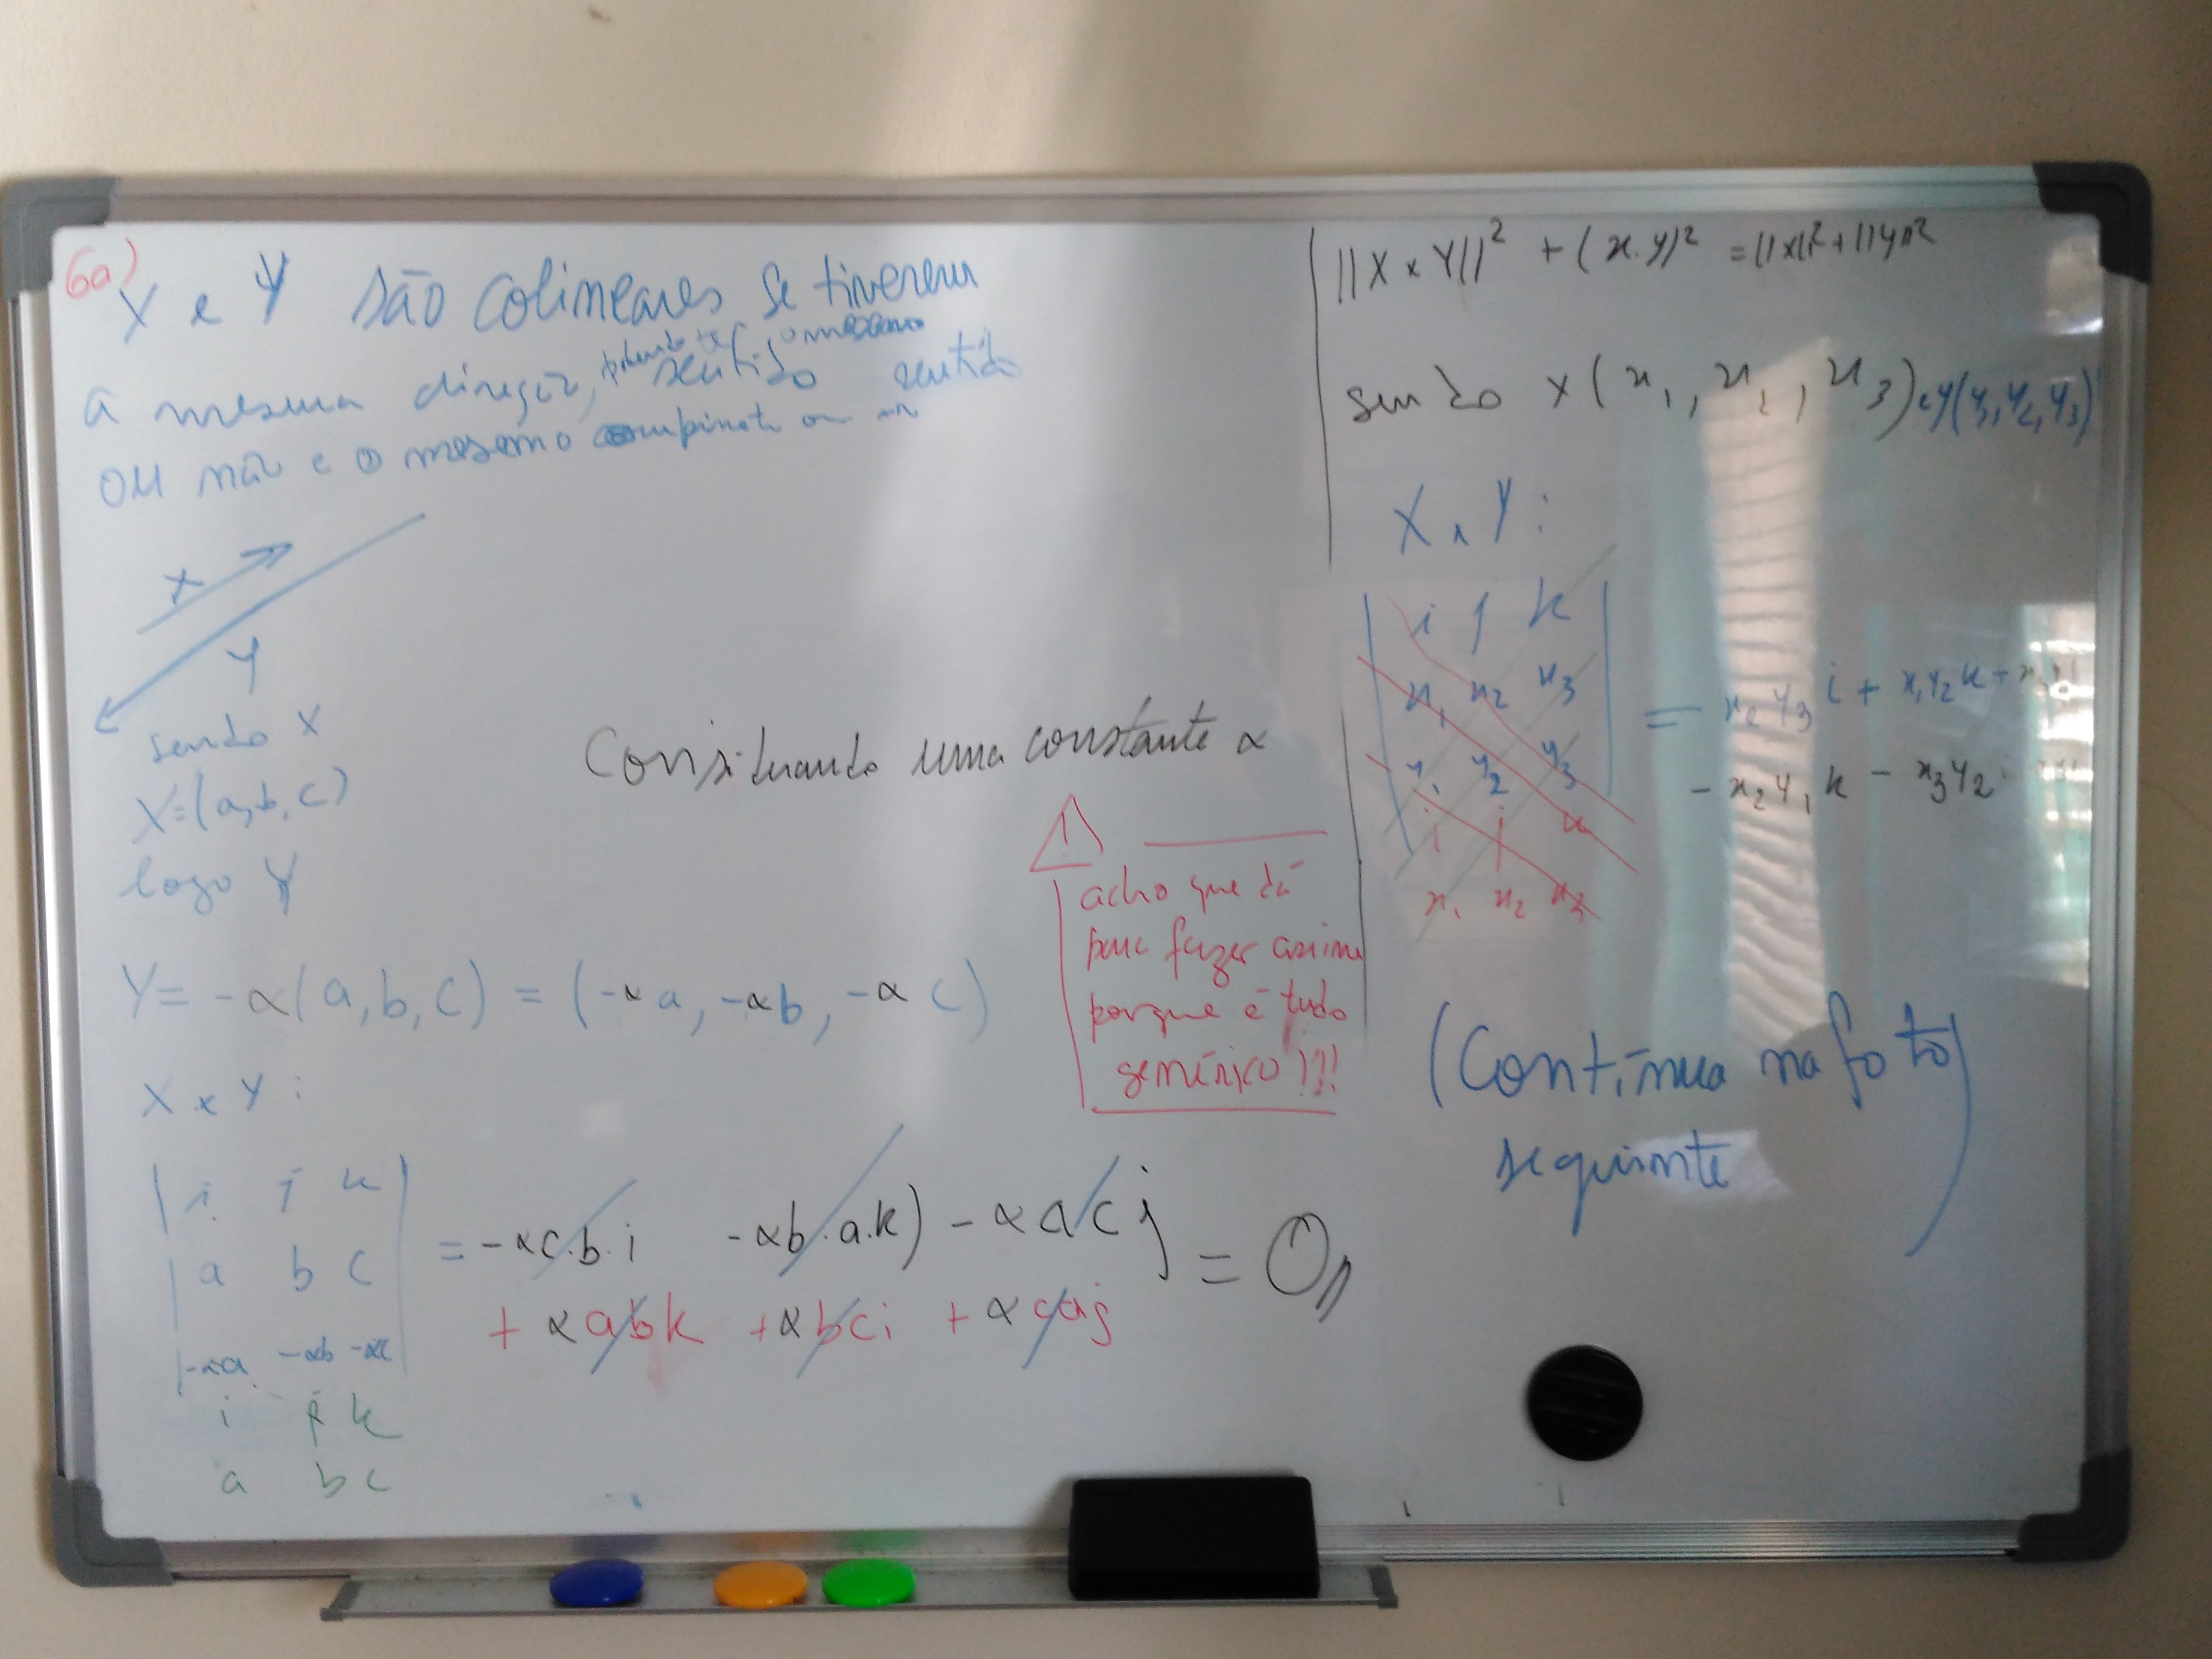 6a)
X e Y são colineares se tiverem
a mesma direção, sentido o mesmo sentido
ou não e o mesmo ou
X
Y
sendo X
X=(a,b,c)
logo Y
Considerando uma constante α
Y= -α(a,b,c) = (-αa, -αb, -αc)
X x Y :
i j k
a b c
-αa -αb -αc
i j k
a b c
= -αc.b.i -αb.a.k) - αacj
+ αabk +αbci + αcaj
= 0
!
acho que dá
para fazer assim
porque é tudo
genérico!!!
||X x Y||² + (x.y)² = ||x||² + ||y||²
sendo x(x₁, x₂, x₃) e y(y₁, y₂, y₃)
X x Y :
i j k
x₁ x₂ x₃
y₁ y₂ y₃
i j k
x₁ x₂ x₃
= x₂y₃i + x₁y₂k +
- x₂y₁k - x₃y₂i
(Continua na foto
seguinte)